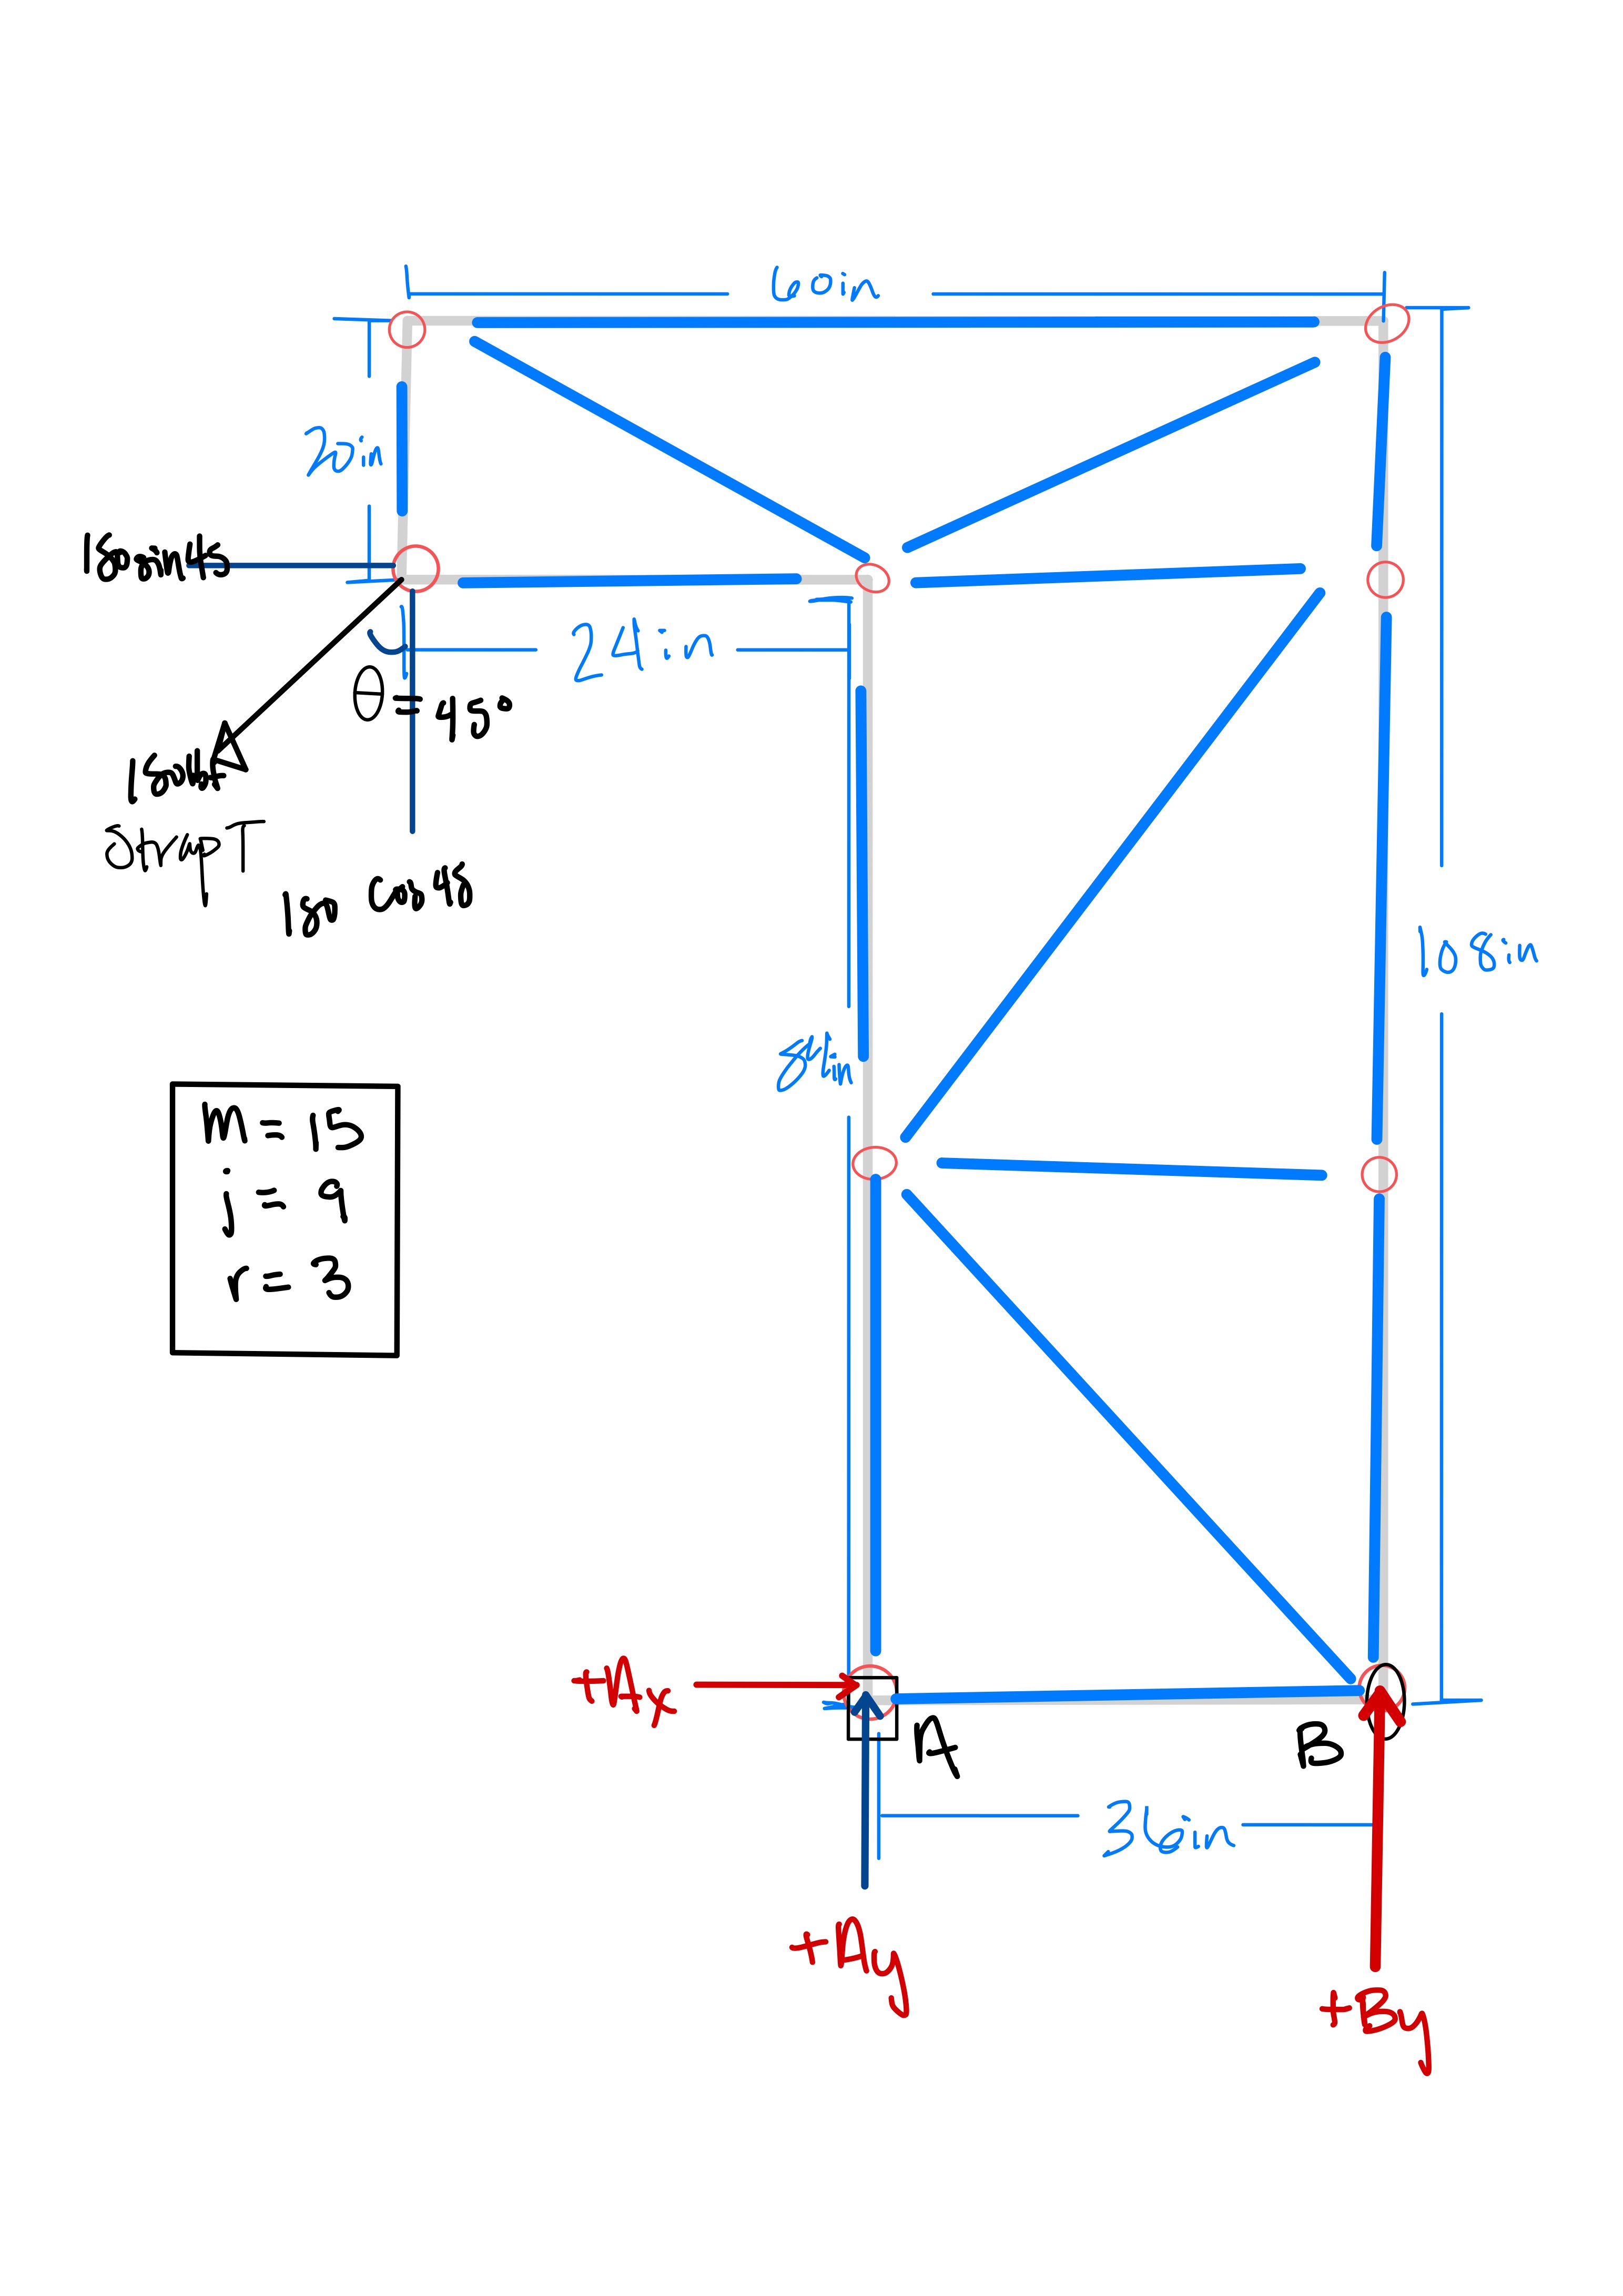 60in
20in
180sin45
24in
θ = 45°
180lbf
Strap T
180 cos45
108in
84in
m = 15
j = 9
r = 3
+Ax
A
B
36in
+Ay
+By